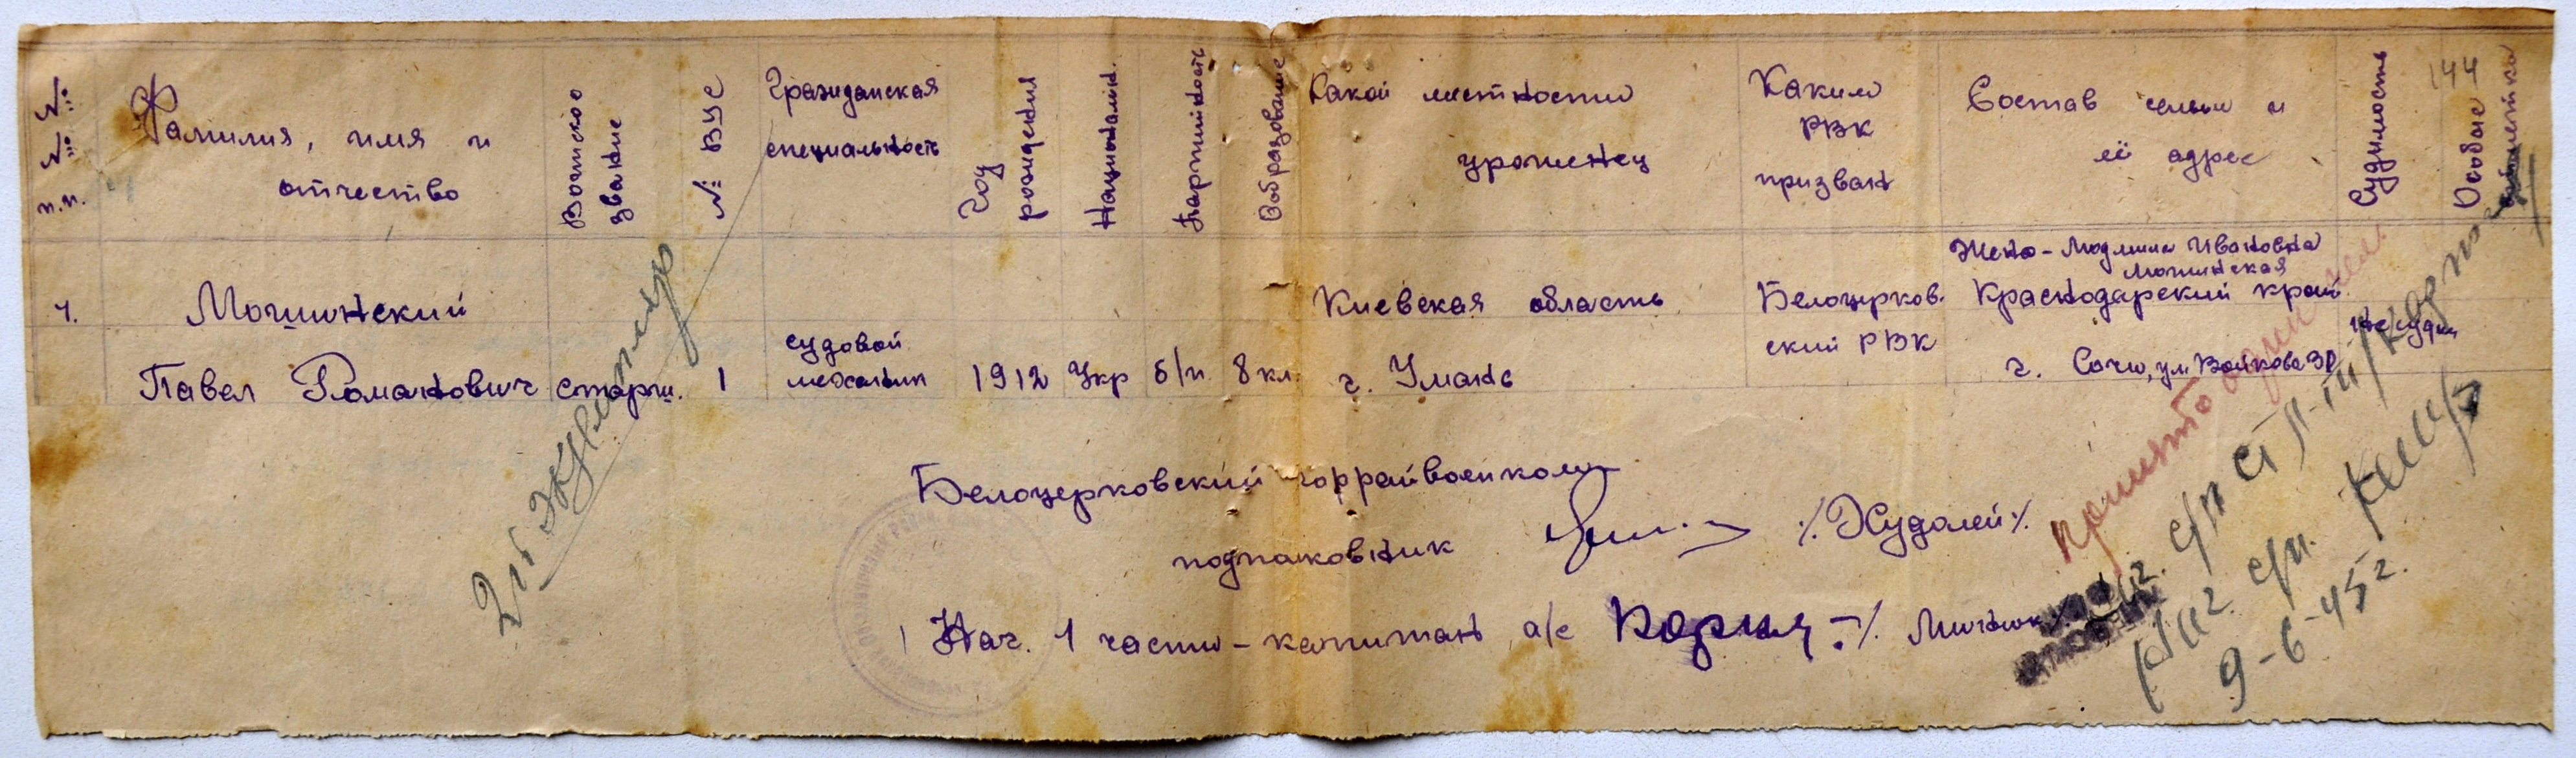 №№ п.п.
Фамилия, имя и отчество
Воинско звание
№ ВУС
Гражданская специальность
Год рождения
Национальн.
Партийность
Вобразование
Какой местности уроженец
Каким РВК призван
Состав семьи и её адрес
Судимость
Особые отметки
144
1.
Мошинский
Павел Романович
старш.
1
судовой механик
1912
Укр
б/п
8 кл.
Киевская область
г. Умань
Белоцерков-
ский РВК
Жена - Людмила Ивановна
Мошинская
Краснодарский край
г. Сочи, ул. Войкова
не судим
2й экземпляр
Белоцерковский горрайвоенком
подполковник
/Худолей/
Нач. 1 части - капитан а/с
Принято
9-6-45 г.